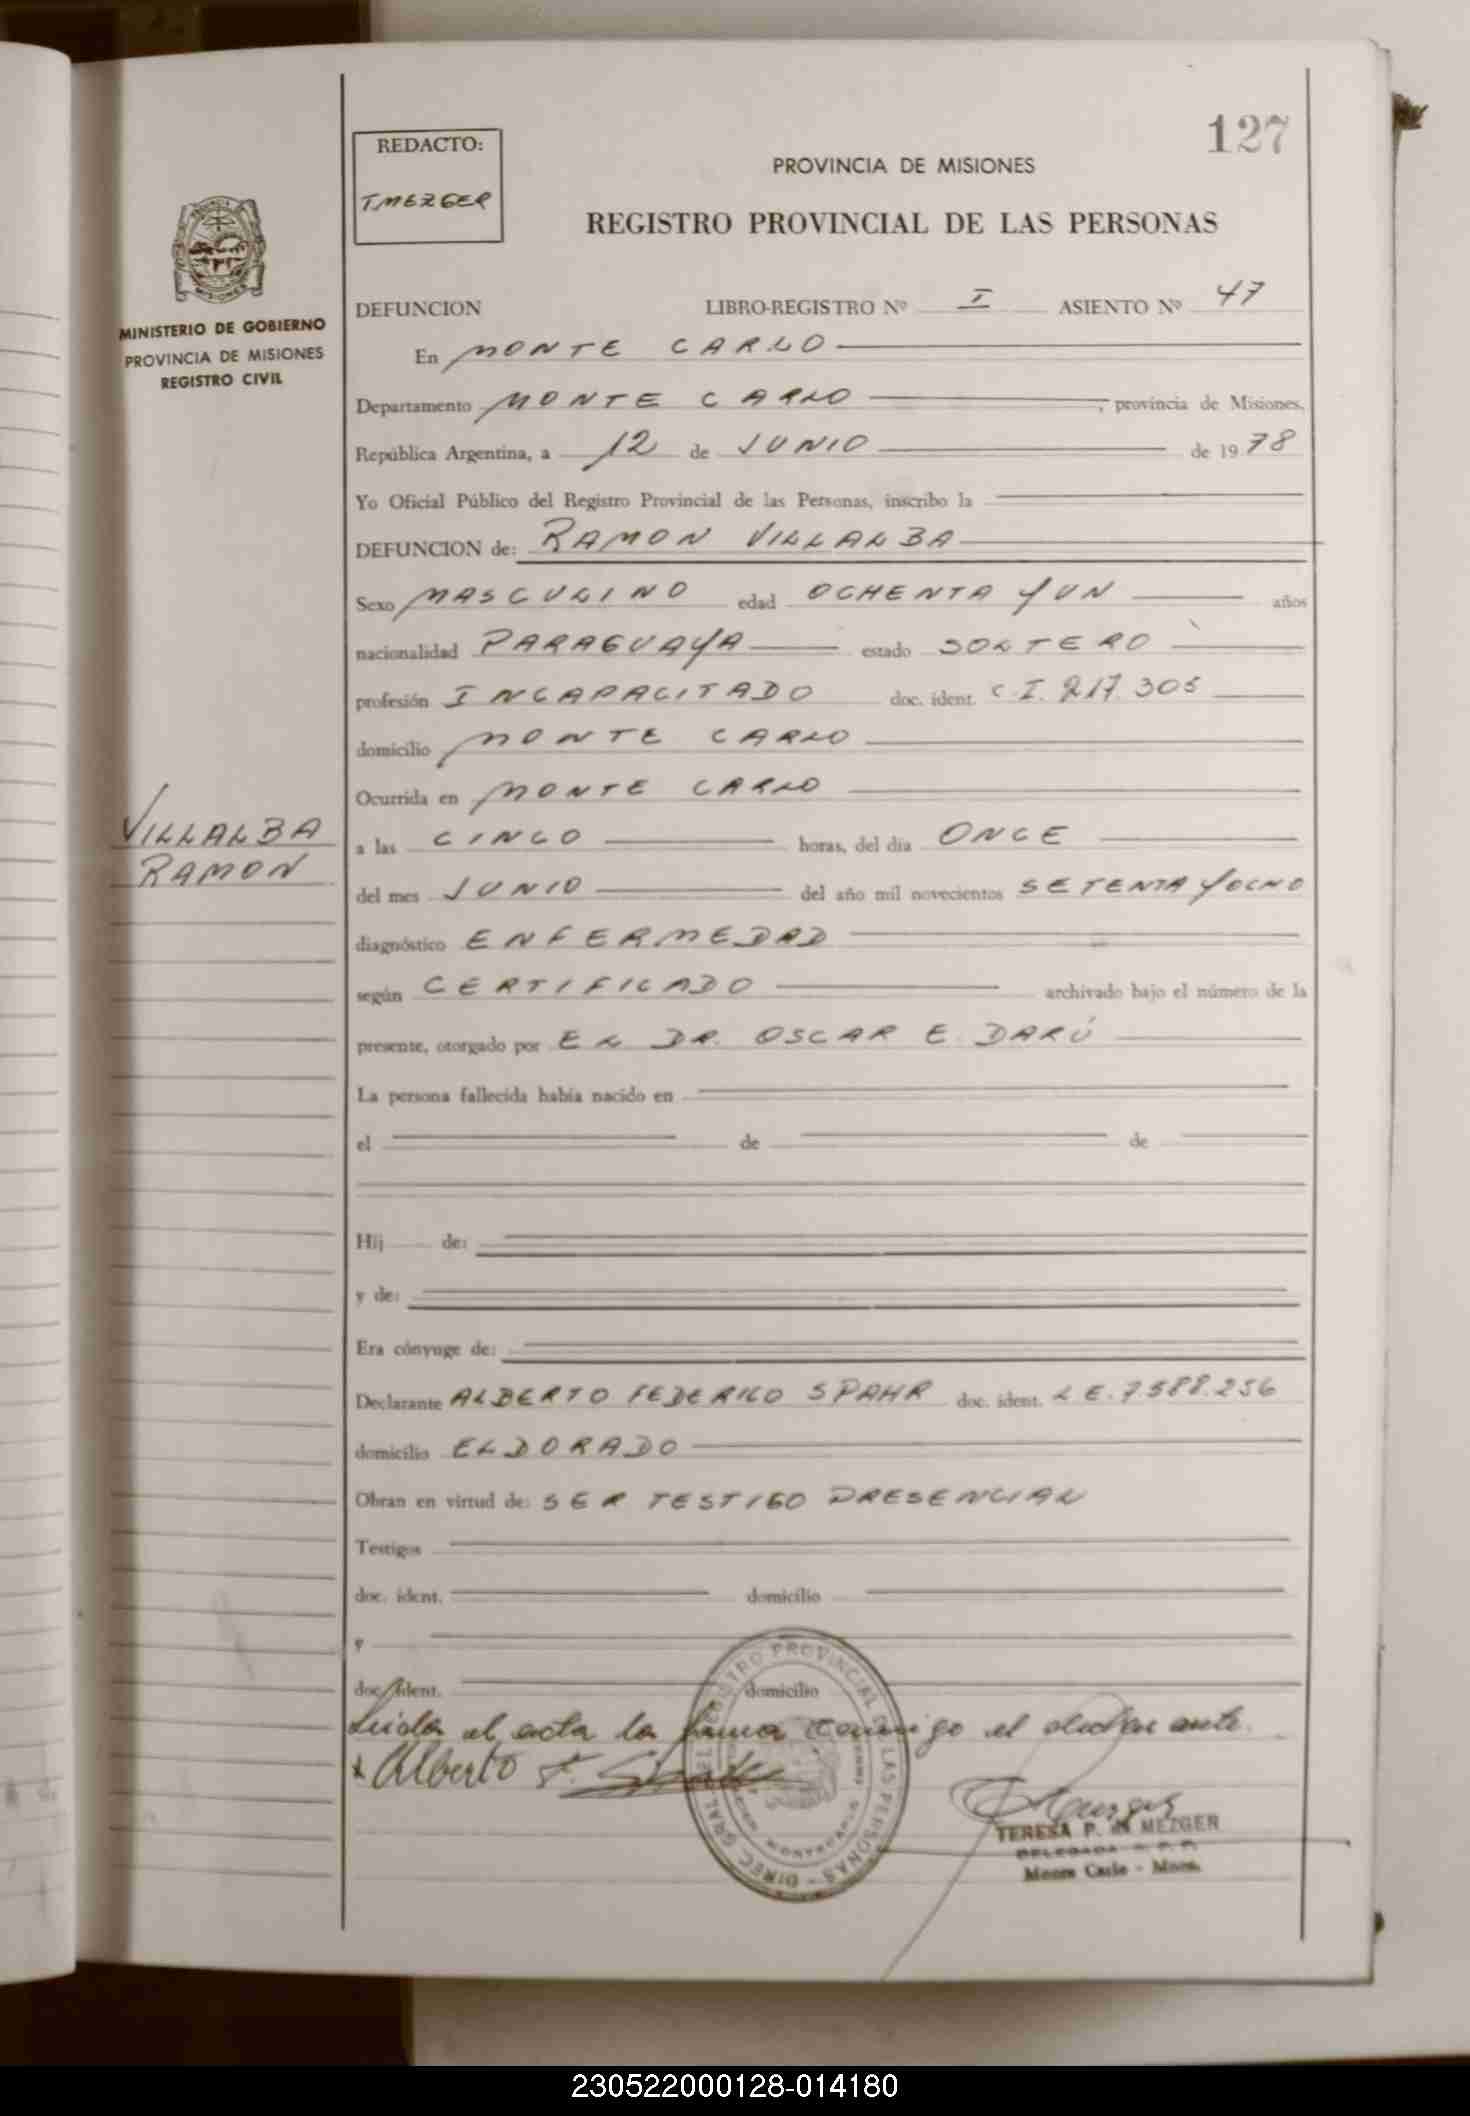 127
REDACTO:
T. MEZGER
PROVINCIA DE MISIONES
REGISTRO PROVINCIAL DE LAS PERSONAS
MINISTERIO DE GOBIERNO
PROVINCIA DE MISIONES
REGISTRO CIVIL
DEFUNCION LIBRO-REGISTRO Nº I ASIENTO Nº 47
En MONTE CARLO
Departamento MONTE CARLO, provincia de Misiones,
República Argentina, a 12 de JUNIO de 1978
Yo Oficial Público del Registro Provincial de las Personas, inscribo la
DEFUNCION de: RAMON VILLALBA
Sexo MASCULINO edad OCHENTA Y UN años
nacionalidad PARAGUAYA estado SOLTERO
profesión INCAPACITADO doc. ident. C.I. 217.305
domicilio MONTE CARLO
Ocurrida en MONTE CARLO
VILLALBA
RAMON
a las CINCO horas, del día ONCE
del mes JUNIO del año mil novecientos SETENTA Y OCHO
diagnóstico ENFERMEDAD
según CERTIFICADO archivado bajo el número de la
presente, otorgado por EL DR. OSCAR E. DARÚ
La persona fallecida había nacido en
el de de
Hij de:
y de:
Era cónyuge de:
Declarante ALBERTO FEDERICO SPAHR doc. ident. L E. 7.588.256
domicilio ELDORADO
Obran en virtud de: SER TESTIGO PRESENCIAL
Testigos
doc. ident. domicilio
y
doc. ident. domicilio
Leida el acta la firma conmigo el declarante.
x Alberto F.
DIREC. GRAL. DEL REGISTRO PROVINCIAL DE LAS PERSONAS
TERESA P. de MEZGER
DELEGADA R. P. P.
Monte Carlo - Mnes.
230522000128-014180